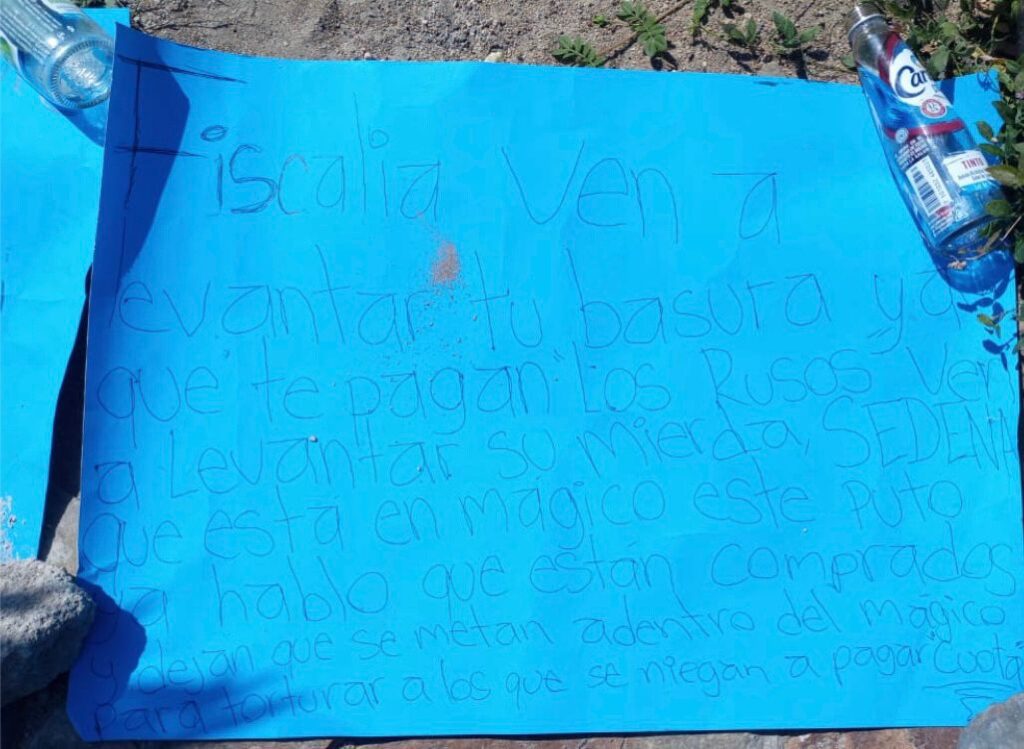 Fiscalia Ven a
levantar tu basura ya
que te pagan "Los Rusos Ven
a Levantar su mierda, SEDENA
que esta en magico este puto
ya hablo que están comprados
y dejan que se metan adentro del magico
para torturar a los que se niegan a pagar cuota
Car
TINTO